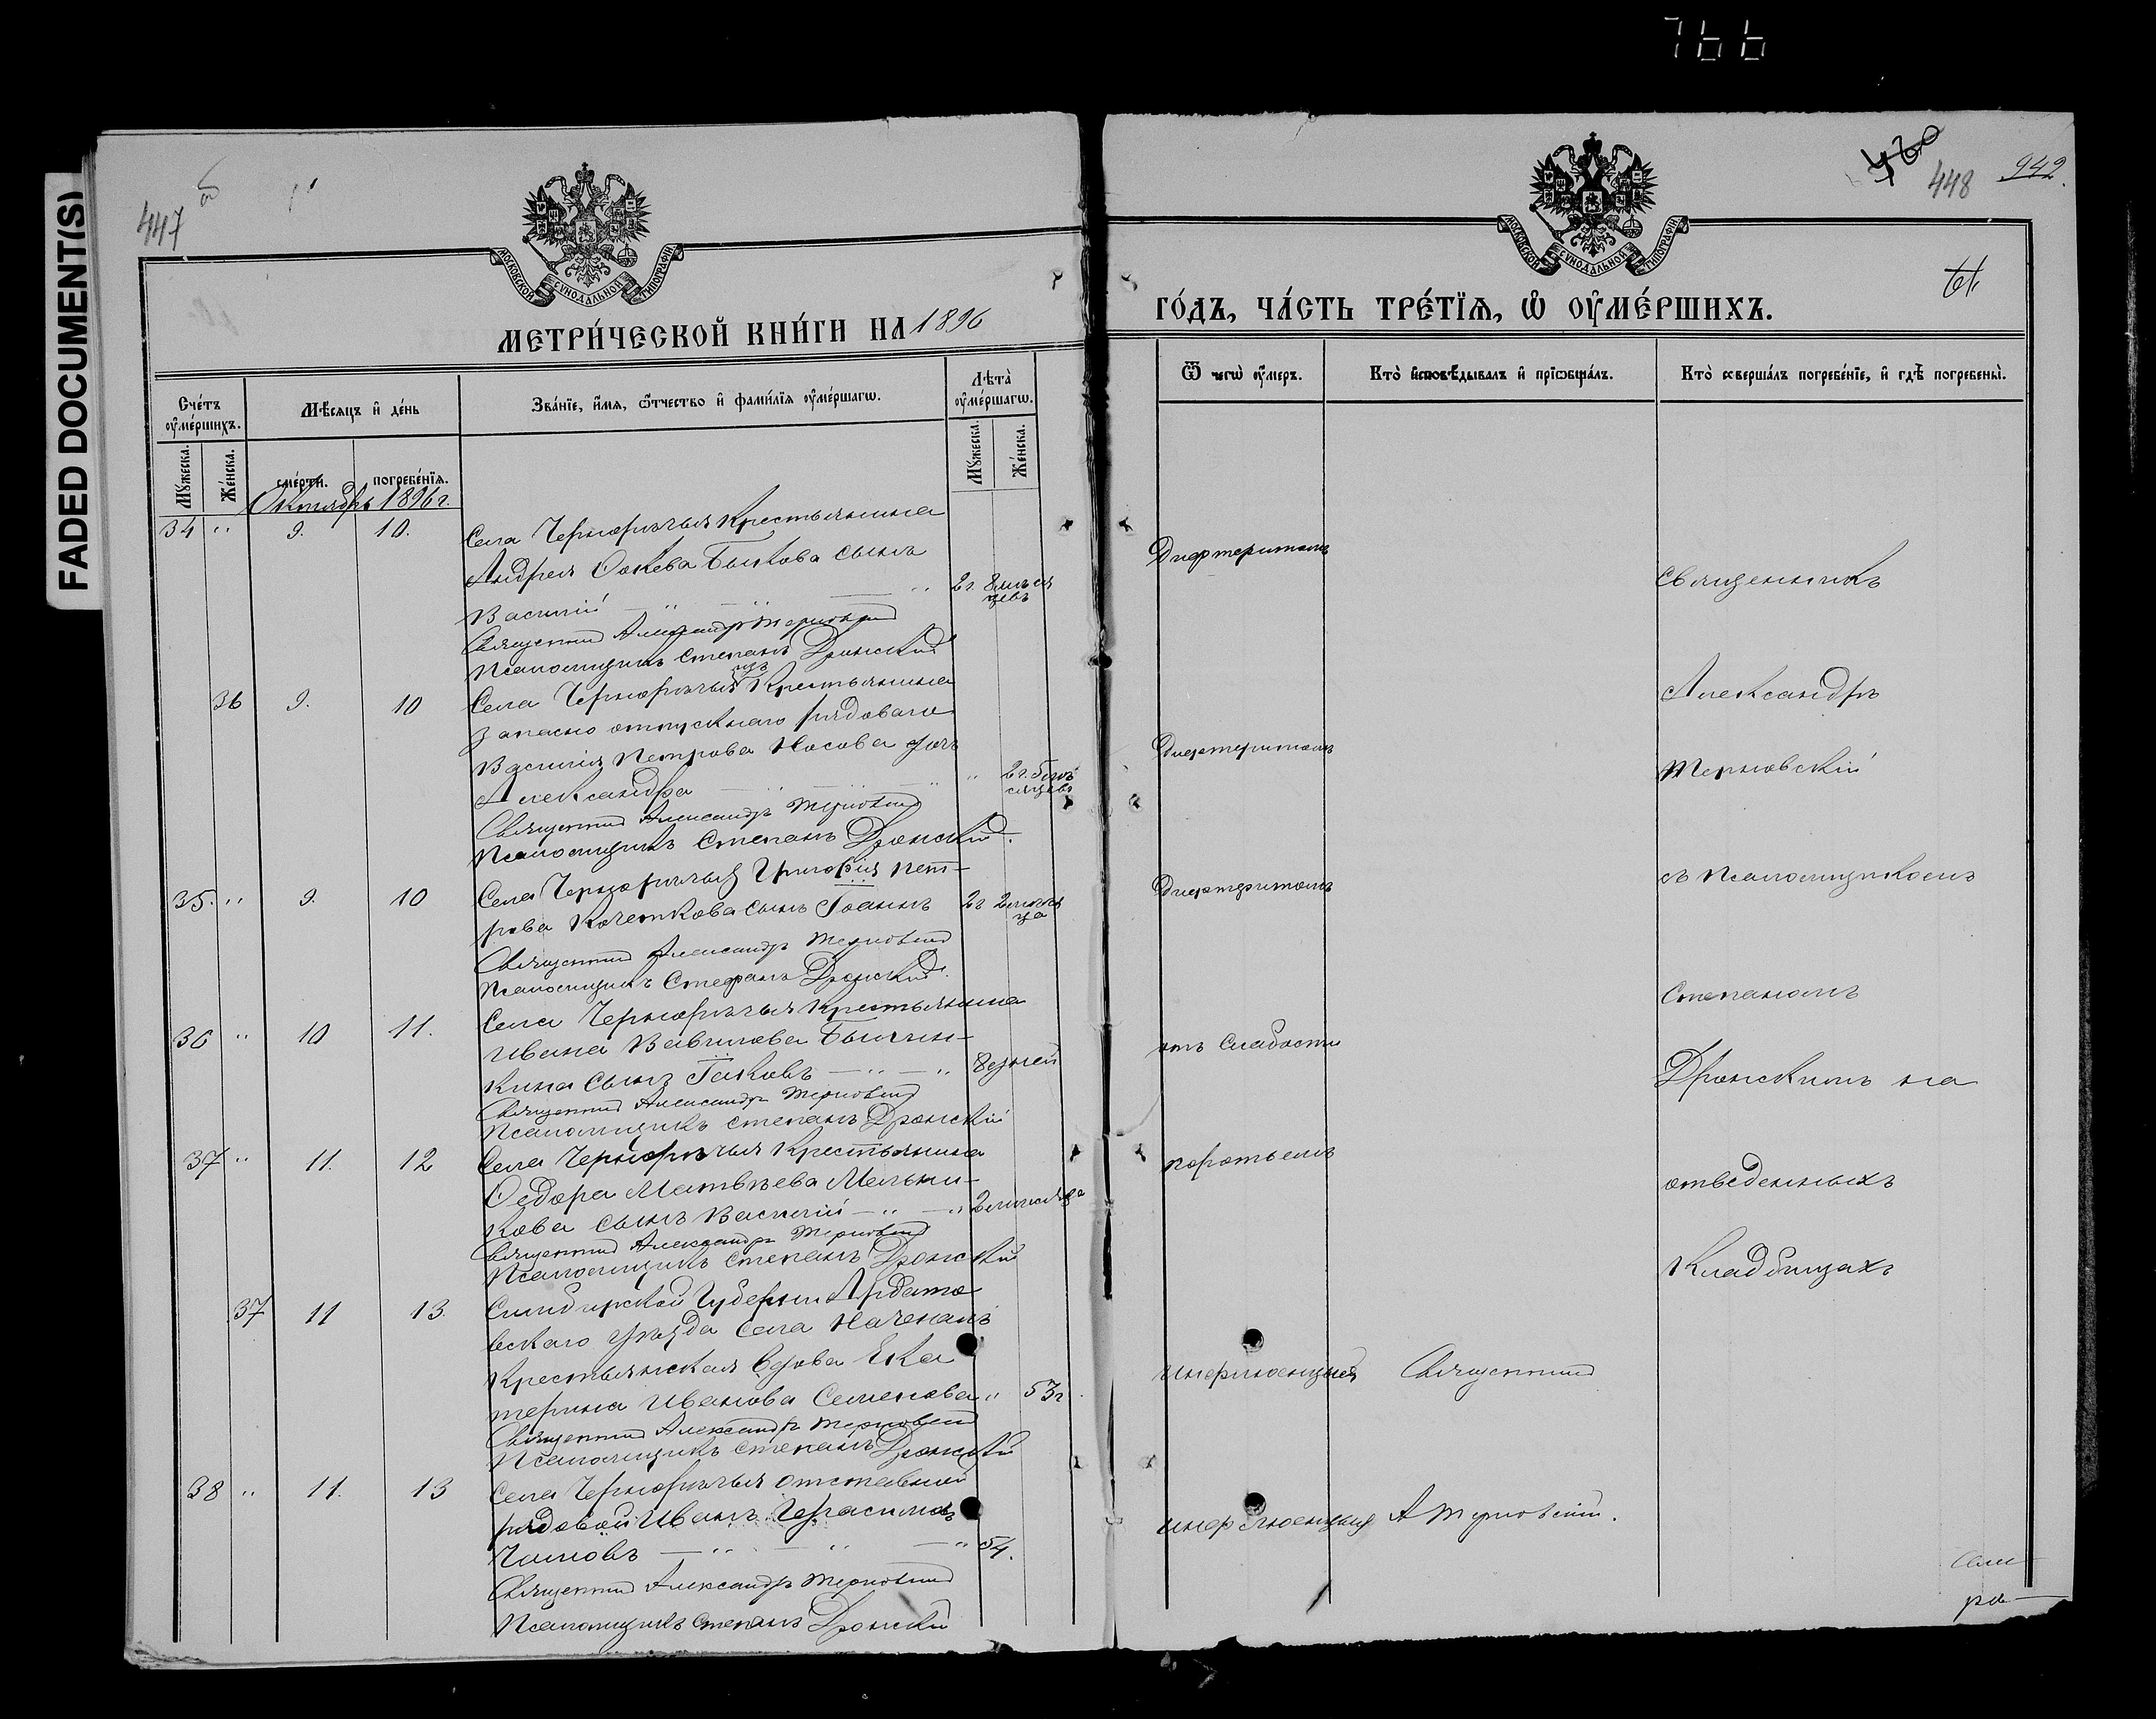 766
FADED DOCUMENT(S)
447
МОСКОВСКОЙ СѴНОДАЛЬНОЙ ТИПОГРАФІИ
МЕТРИ́ЧЕСКОЙ КНИ́ГИ НА 1896
Сче́тъ оу҆ме́ршихъ.
Мѣ́сяцъ и҆ де́нь
Зва́нїе, и҆́мя, ѿ́чество и҆ фами́лїя оу҆ме́ршагѡ.
Лѣ́та оу҆ме́ршагѡ.
Мꙋ́жеска.
Же́нска.
сме́рти.
погребе́нїя.
Мꙋ́жеска.
Же́нска.
Октябрь 1896 г.
34 " 9. 10. Села Чернорѣчья Крестьянина
Андрея Быкова сынъ
Василій — " — " — " 2 г. 8 мѣся
цевъ
Священникъ Александръ Терновскій
Псаломщикъ Степанъ Дронскій
36 9. 10 Села Чернорѣчья изъ Крестьянина
запасно отпускнаго рядоваго
Василія Петрова Носова дочь
Александра — " — " " 2 г. 5 мѣ
сяцевъ
Священникъ Александръ Терновскій
Псаломщикъ Степанъ Дронскій.
35. " 9. 10 Села Чернорѣчья Григорія Пет-
рова Кочеткова сынъ Іоаннъ 2 г 2 мѣся
ца
Священникъ Александръ Терновскій
Псаломщикъ Стефанъ Дронскій.
36 " 10 11. Села Чернорѣчья Крестьянина
Ивана Вавилова
кина сынъ Іаковъ — " — " 8 дней
Священникъ Александръ Терновскій
Псаломщикъ Степанъ Дронскій
37 " 11. 12 Села Чернорѣчья Крестьянина
Ѳедора Матвѣева Мельни-
кова сынъ Василій — " — " 2 мѣсяца
Священникъ Александръ Терновскій
Псаломщикъ Степанъ Дронскій
37 11 13. Симбирской Губерніи Ардато
вскаго уѣзда села
Крестьянская вдова Ека
терина Иванова Семенова " 53 г.
Священникъ Александръ Терновскій
Псаломщикъ Степанъ Дронскій
38 " 11. 13 Села Чернорѣчья отставной
рядовой Иванъ Герасимовъ
— " — " — " 54.
Священникъ Александръ Терновскій
Псаломщикъ Степанъ Дронскій
448
942.
МОСКОВСКОЙ СѴНОДАЛЬНОЙ ТИПОГРАФІИ
ГО́ДЪ, ЧА́СТЬ ТРЕ́ТЇЯ, Ѡ҆ ОУ҆МЕ́РШИХЪ.
Ѿ чегѡ̀ оу҆́меръ.
Кто̀ и҆сповѣ́дывалъ и҆ прїѡбща́лъ.
Кто̀ соверша́лъ погребе́нїе, и҆ гдѣ̀ погребены̀.
Дифтеритомъ
Священникъ
Александръ
Дифтеритомъ
Терновскій
Дифтеритомъ
съ Псаломщикомъ
Степаномъ
отъ Слабости
Дронскимъ на
отведенныхъ
Кладбищахъ
Инфлюенцыей Священникъ
инфлюенцыя А Терновскій.